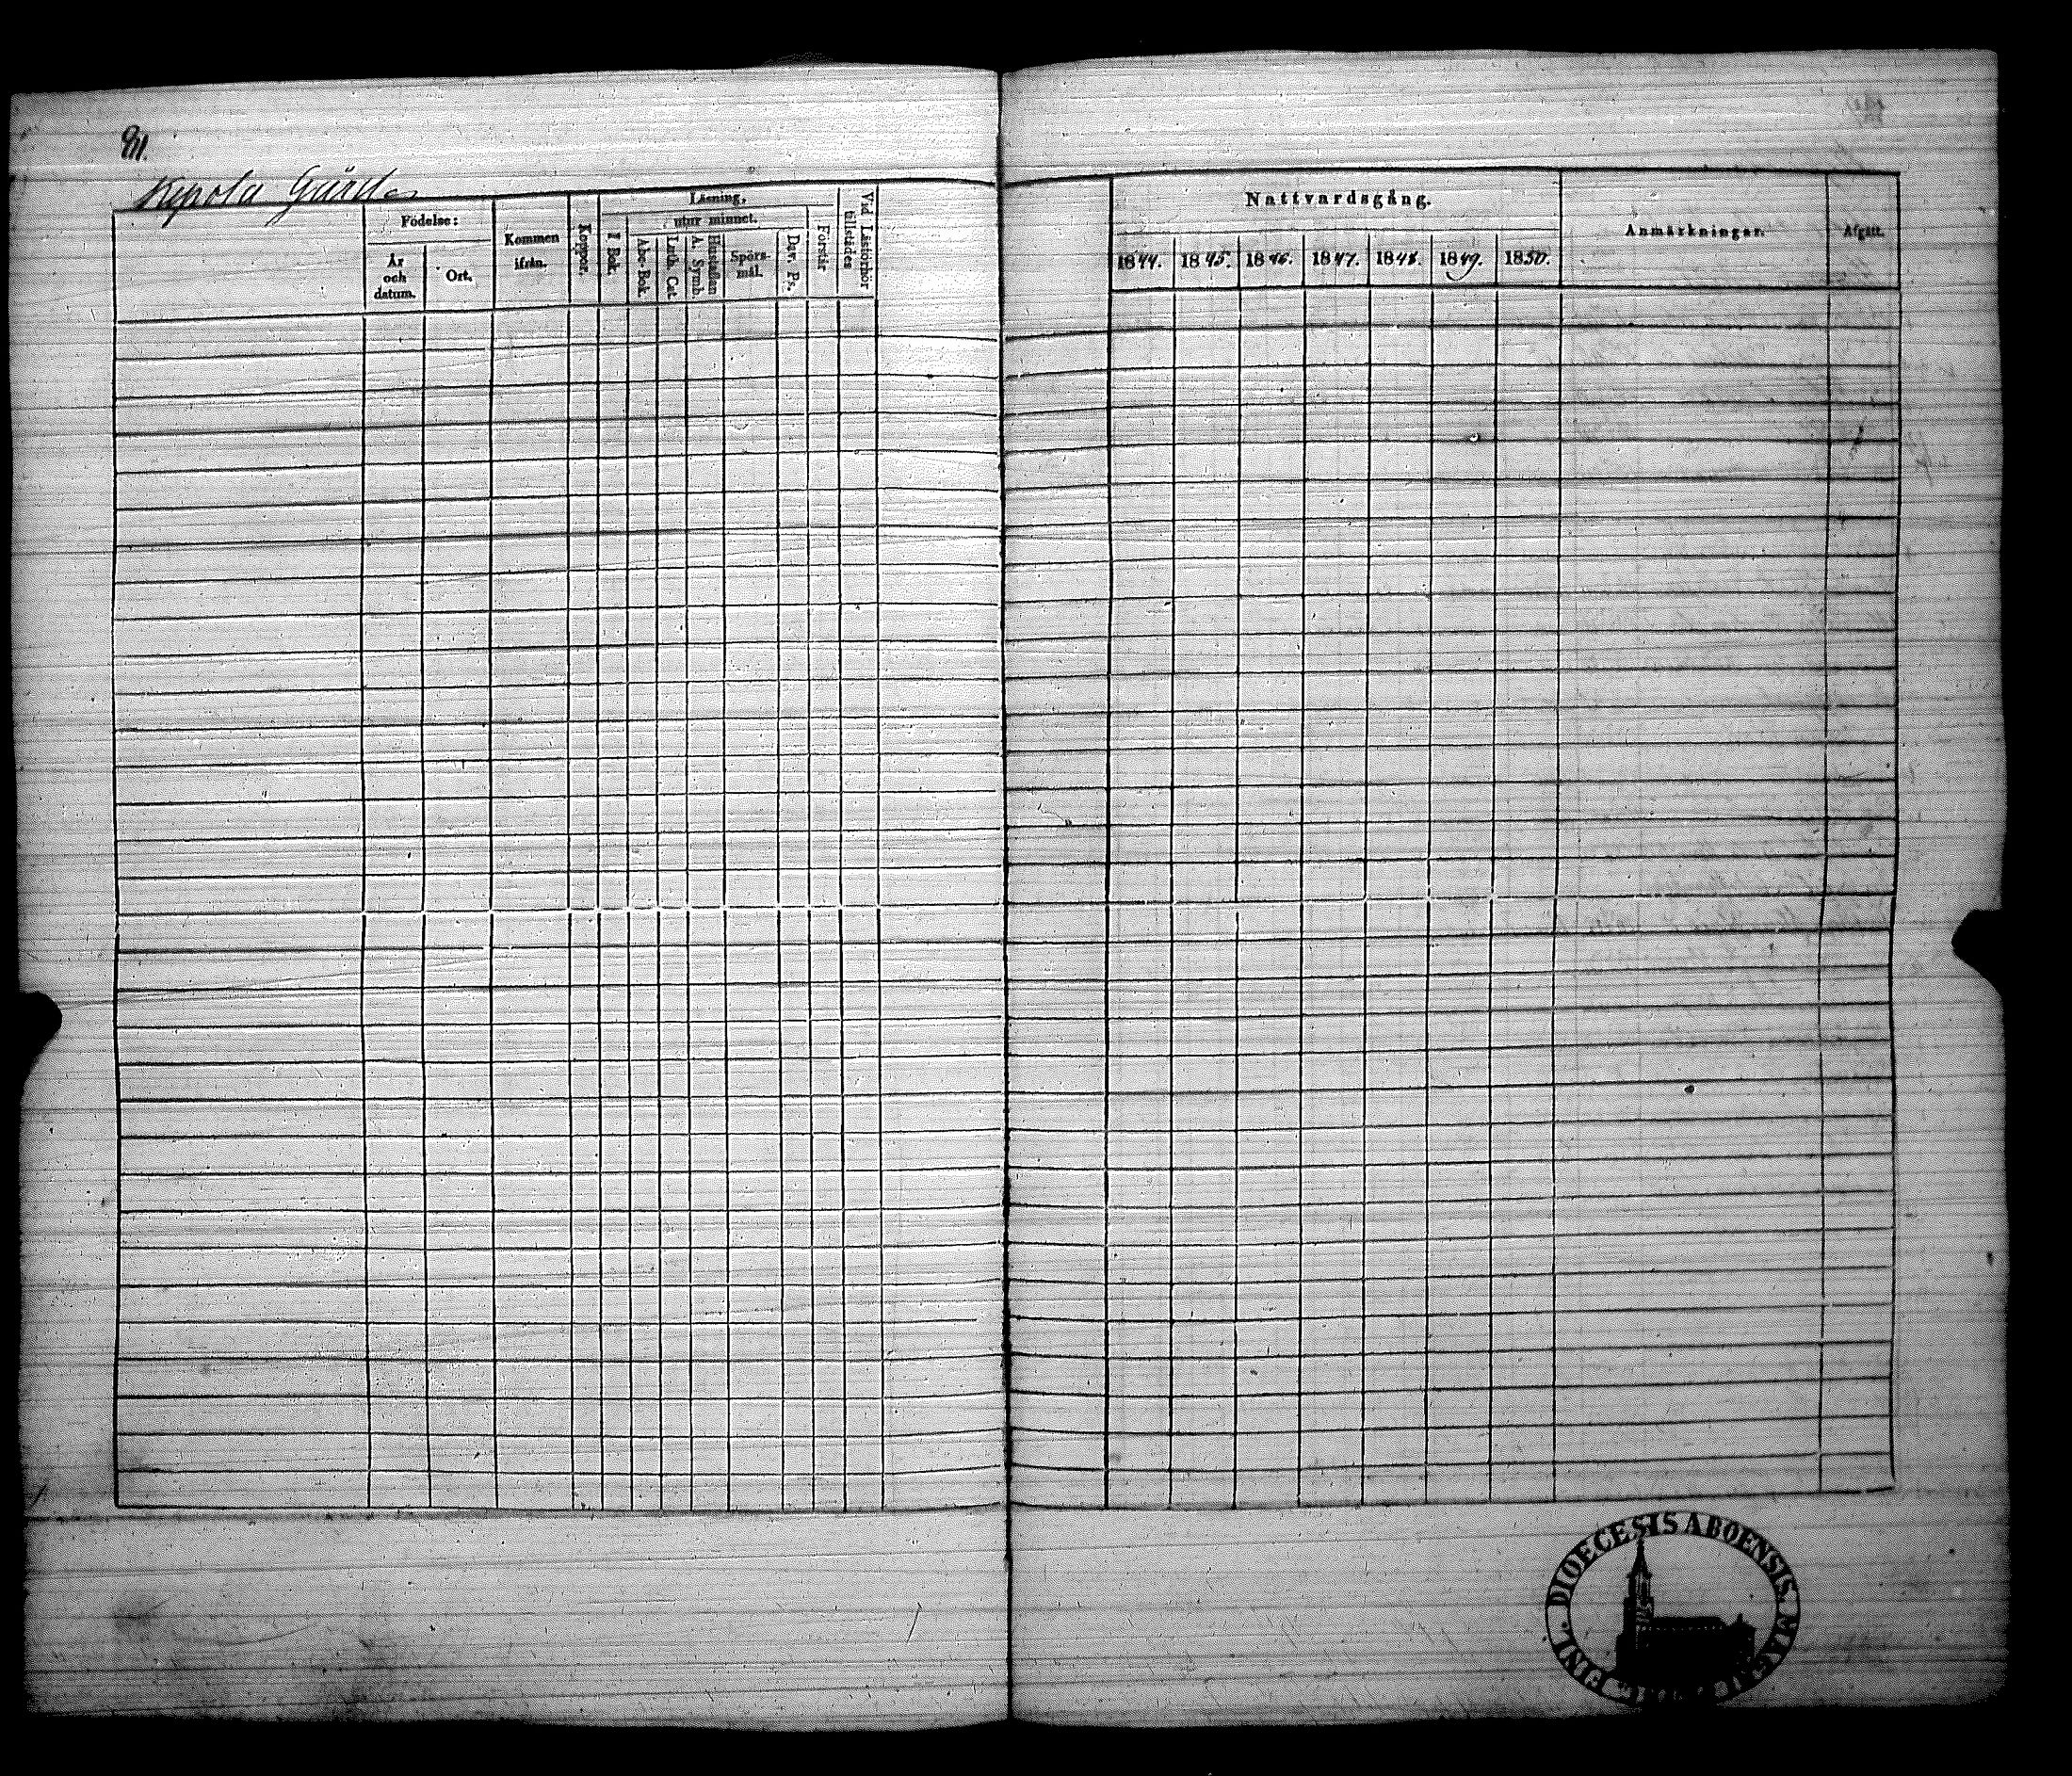 Födelse:
År
och
datum.
Ort.
Kommen
ifrån.
Koppor.
Läsning,
I Bok.
utur minnet.
Abc-Bok.
Luth. Cat
Hustaflan
A. Symb.
Spörs-
mål.
Dav. Ps.
Förstår
Vid Läsförhör
tillstädes
Nattvardsgång.
1844.
1845.
1846.
1847.
1848.
1849.
1850.
Anmärkningar.
Afgått.
DIOECESIS ABOENSIS. MAGNI FINL.